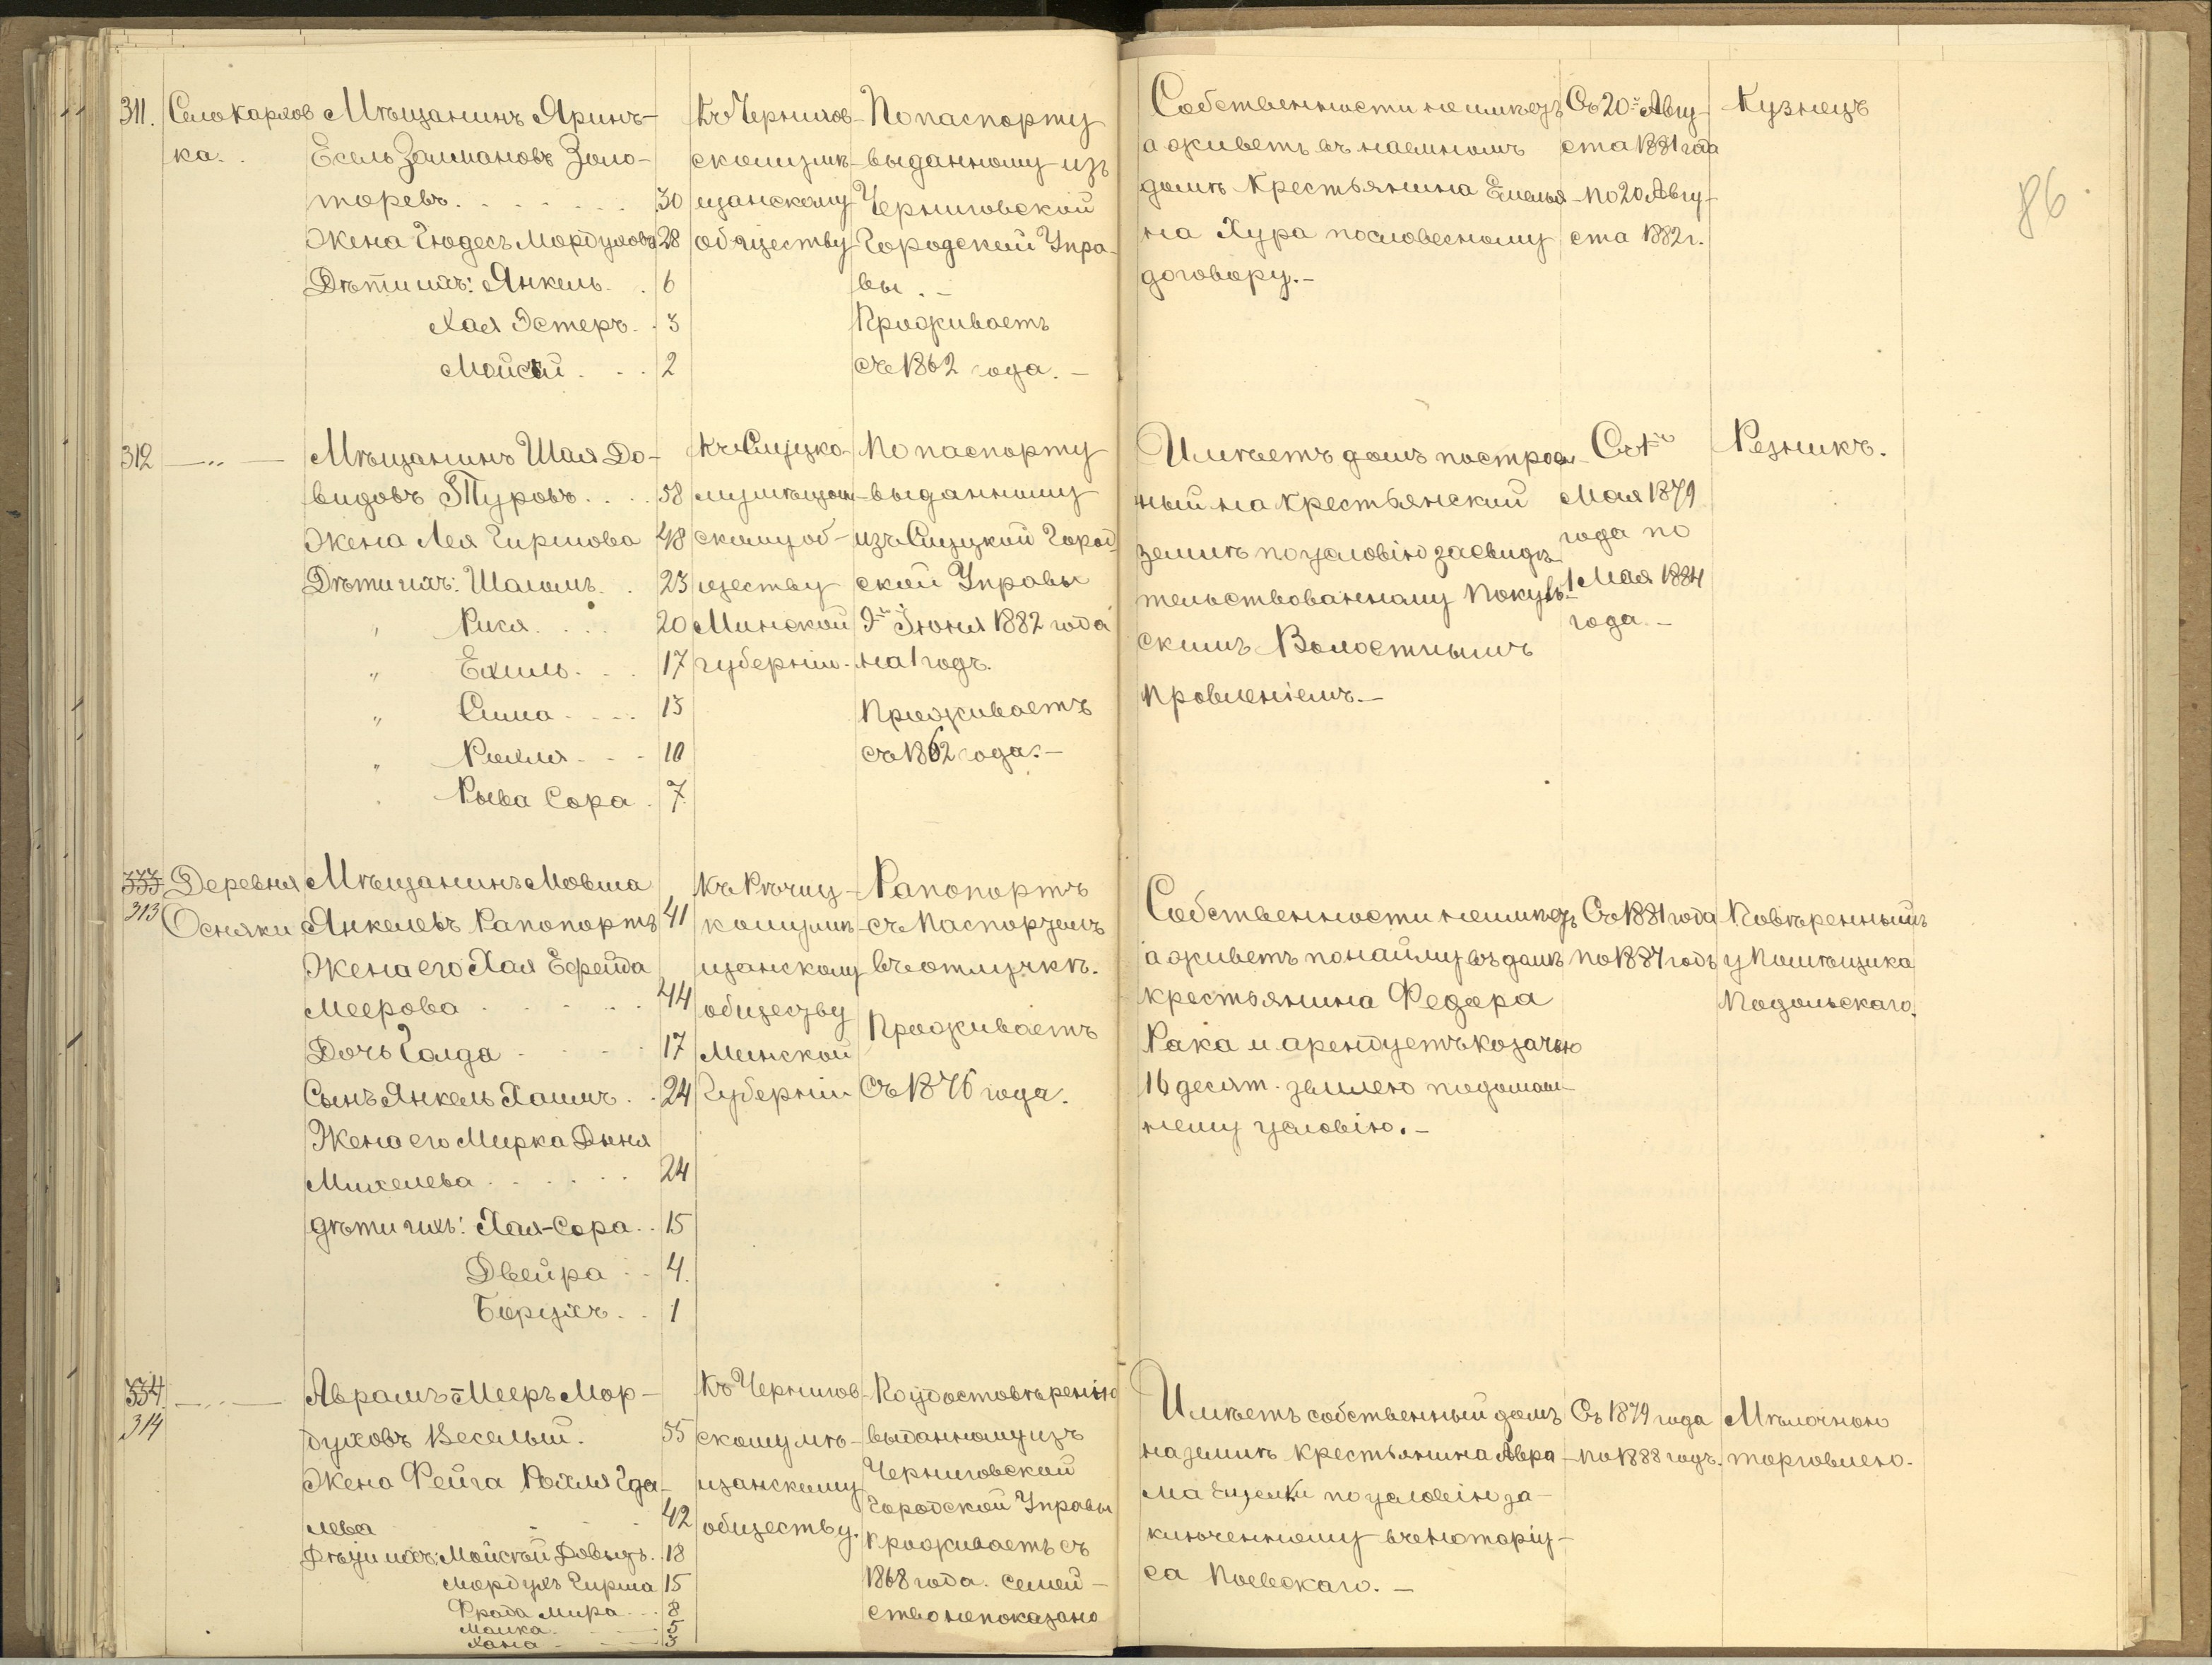 86
311.
Село Кархов
ка.
Мѣщанинъ Яринъ-
Есель Залмановъ Золо-
торевъ. 30
Жена Гюдесъ Мордухова 28
Дѣти ихъ: Янкель. 6
Хая Эстеръ. 3
Мойсей. 2
Къ Чернигов-
скому мѣ-
щанскому
обществу
По паспорту
выданному изъ
Черниговской
Городской Упра-
вы.-
Проживаетъ
съ 1862 года.-
Собственности не имѣетъ
а живетъ въ наемномъ
домѣ Крестьянина Емелья-
на Хура по словесному
договору.-
Съ 20го Авгу-
ста 1881 года
по 20 Авгу-
ста 1882 г.
Кузнецъ
312 —„—
Мѣщанинъ Шая До-
видовъ Туровъ. 58
Жена Лея Гиршова 48
Дѣти ихъ: Шаломъ. 23
„ Рися. 20
„ Ехиль. 17
„ Сима. 13
„ Рихля. 10
Рыва Сора. 7.
Къ Слуцко-
му мѣщан-
скому об-
ществу
Минской
губерніи.
По паспорту
выданному
изъ Слуцкой Город-
ской Управы
9го Іюня 1882 года
на 1 годъ.
Проживаетъ
съ 1862 года.-
Имѣетъ домъ построен-
ный на крестьянский
землѣ по условію засвидѣ-
тельствованному Покуль-
скимъ Волостнымъ
Провленіемъ.-
Съ 1го
Мая 1879
года по
1 Мая 1884
года.-
Резникъ.
333
313
Деревня
Осняки
Мѣщанинъ Мовша
Янкелевъ Рапопортъ 41
Жена его Хая Ефейда
Меерова 44
Дочь Голда 17
Сынъ Янкель Хаимъ. 24
Жена его Мирка Дыня
Михелева 24
дѣти ихъ: Хая-Сора. 15
Двейра 4.
Борухъ. 1
Къ Рѣчиц-
кому мѣ-
щанскому
обществу
Минской
Губерніи
Рапопортъ
съ Паспортемъ
въ отлучкѣ.
Проживаетъ
Съ 1876 года.
Собственности не имѣетъ
а живетъ по найму въ домѣ
крестьянина Федора
Рака и арендуетъ козачью
16 десят. землею по домаш-
нему условію.-
Съ 1881 года
по 1884 годъ
Повѣренный
у Помѣщика
Подольскаго.
334.
314
—„—
Аврамъ-Мееръ Мор-
духовъ Веселый. 55
Жена Фейга Рохля Гда-
лева 42
Дѣти ихъ: Мойсѣй Довыдъ. 18
Мордухъ Гирша 15
Фрада Мира. 8
Малка. 5
Хана 3
Къ Чернигов-
скому мѣ-
щанскому
обществу.
По удостовѣренію
выданному изъ
Черниговской
Городской Управы
Проживаетъ съ
1868 года. Семей-
ство не показано
Имѣетъ собственный домъ
на землѣ крестьянина Авра-
ма по условію за-
ключенному въ нотаріу-
са Поевскаго.-
Съ 1879 года
по 1888 годъ.
Мѣлочною
торговлею.